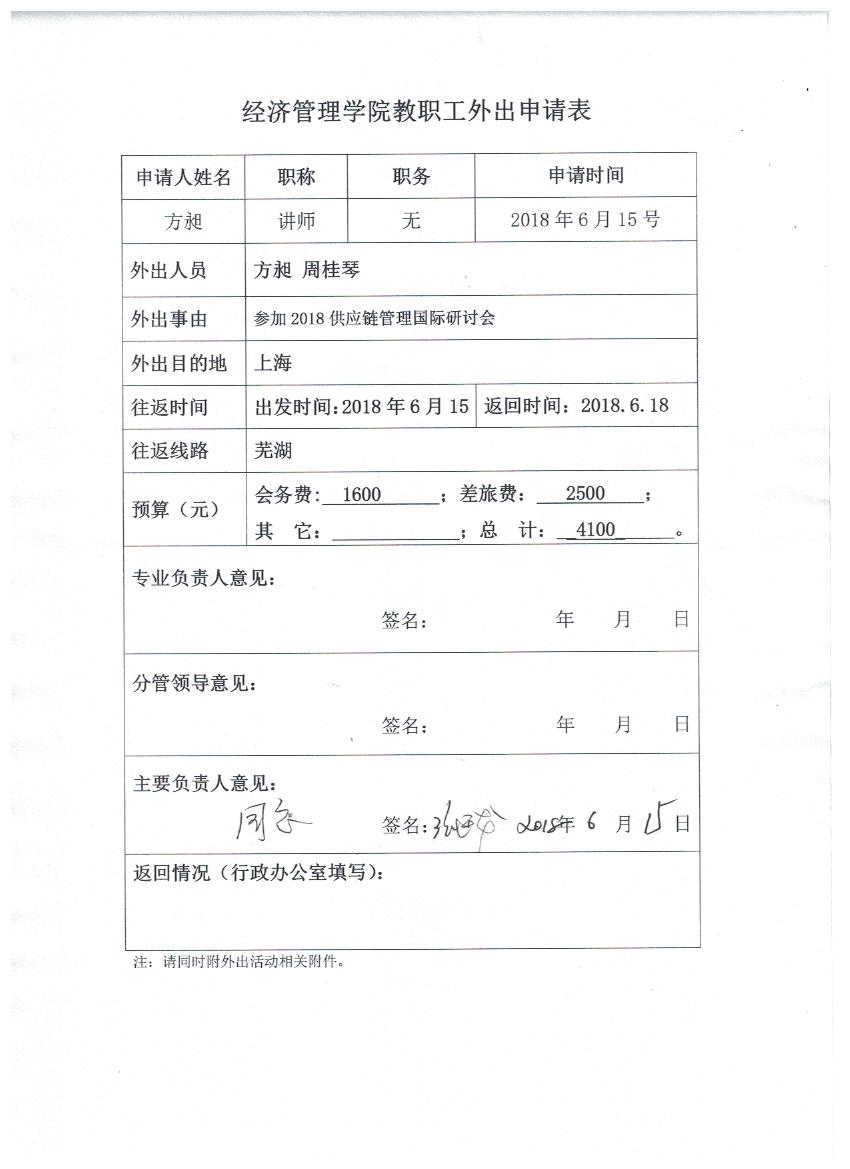 经济管理学院教职工外出申请表
申请人姓名 职称 职务 申请时间
方昶 讲师 无 2018年6月15号
外出人员 方昶 周桂琴
外出事由 参加2018供应链管理国际研讨会
外出目的地 上海
往返时间 出发时间:2018年6月15 返回时间：2018.6.18
往返线路 芜湖
预算（元） 会务费: 1600 ；差旅费： 2500 ；
其 它： ；总 计： 4100 。
专业负责人意见：
签名： 年 月 日
分管领导意见：
签名： 年 月 日
主要负责人意见：
同意 签名： 2018年 6 月 15 日
返回情况（行政办公室填写）：
注：请同时附外出活动相关附件。